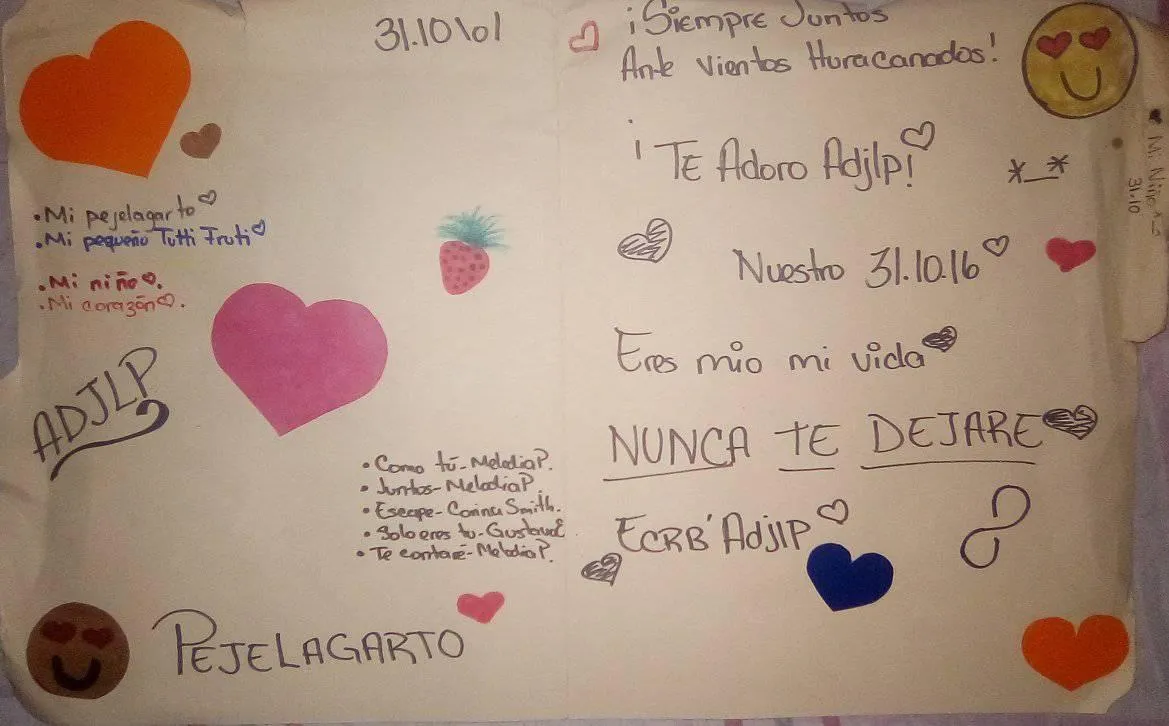 31.10\01
• Mi pejelagarto
• Mi pequeño Tutti Fruti
• Mi niño.
• Mi corazón.
ADJLP
• Como tú - Melodia P.
• Juntos - Melodia P.
• Escape - Corina Smith.
• Solo eres tu - Gustavo E
• Te contaré - Melodia P.
PEJELAGARTO
¡Siempre Juntos
Ante Vientos Huracanados!
¡TE Adoro Adjlp!
*_*
Nuestro 31.10.16
Eres mio mi vida
NUNCA TE DEJARE
ECRB'Adjlp
Mi Niño
31.10